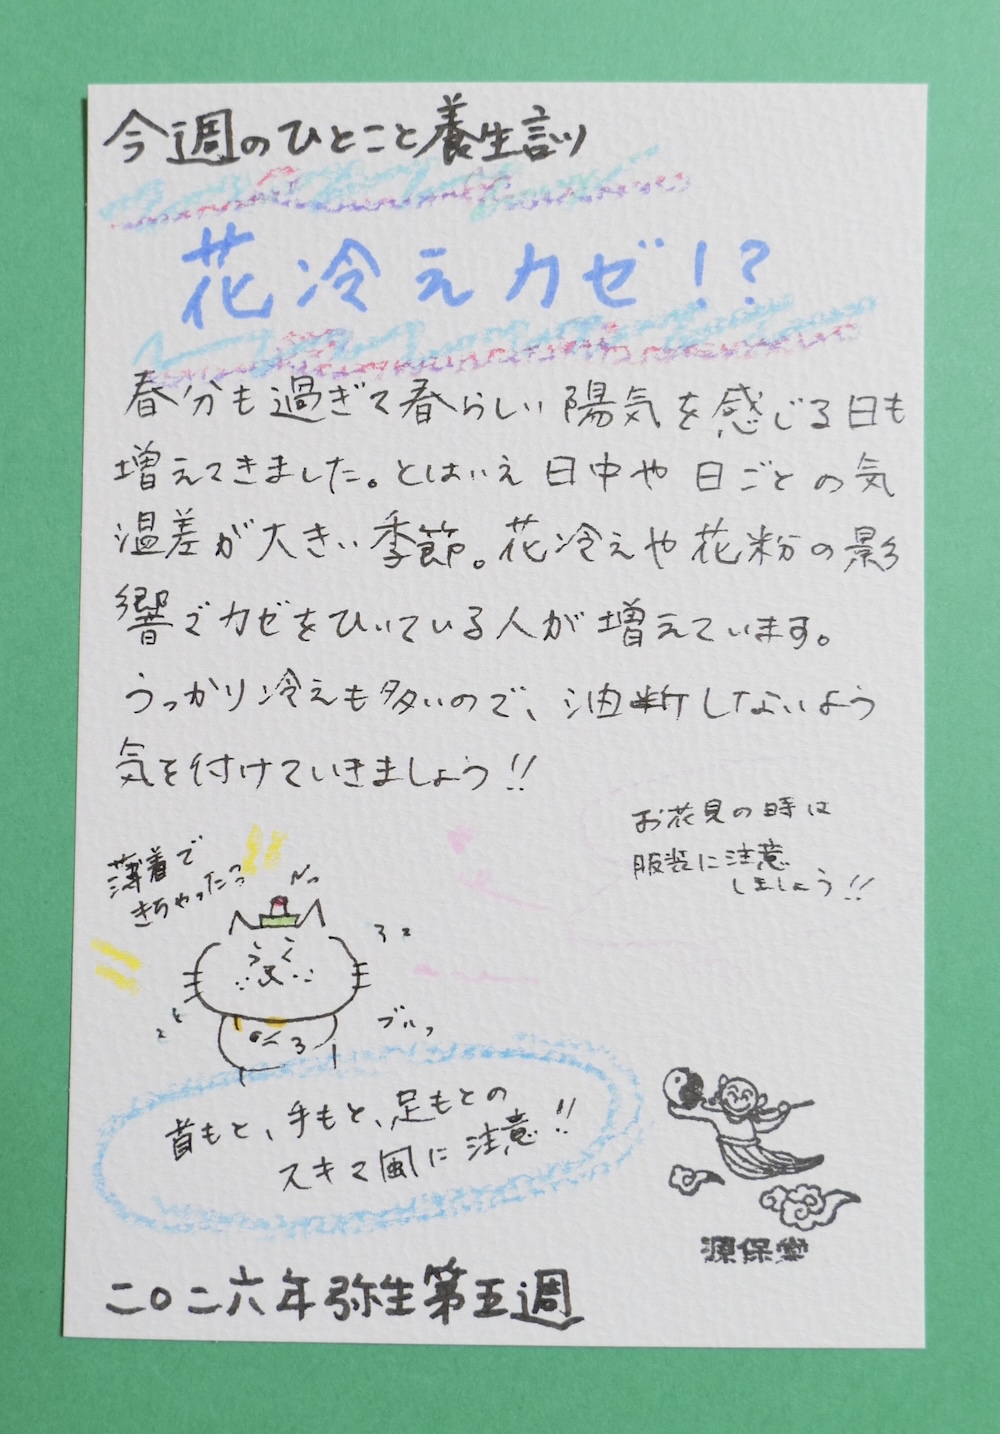 今週のひとこと養生訓
花冷えカゼ!?
春分も過ぎて春らしい陽気を感じる日も
増えてきました。とはいえ日中や日ごとの気
温差が大きい季節。花冷えや花粉の影
響でカゼをひいている人が増えています。
うっかり冷えも多いので、油断しないよう
気を付けていきましょう!!
お花見の時は
服装に注意
しましょう!!
薄着で
きちゃったっ
ブルっ
首もと、手もと、足もとの
スキマ風に注意!!
源保堂
二〇二六年弥生第五週